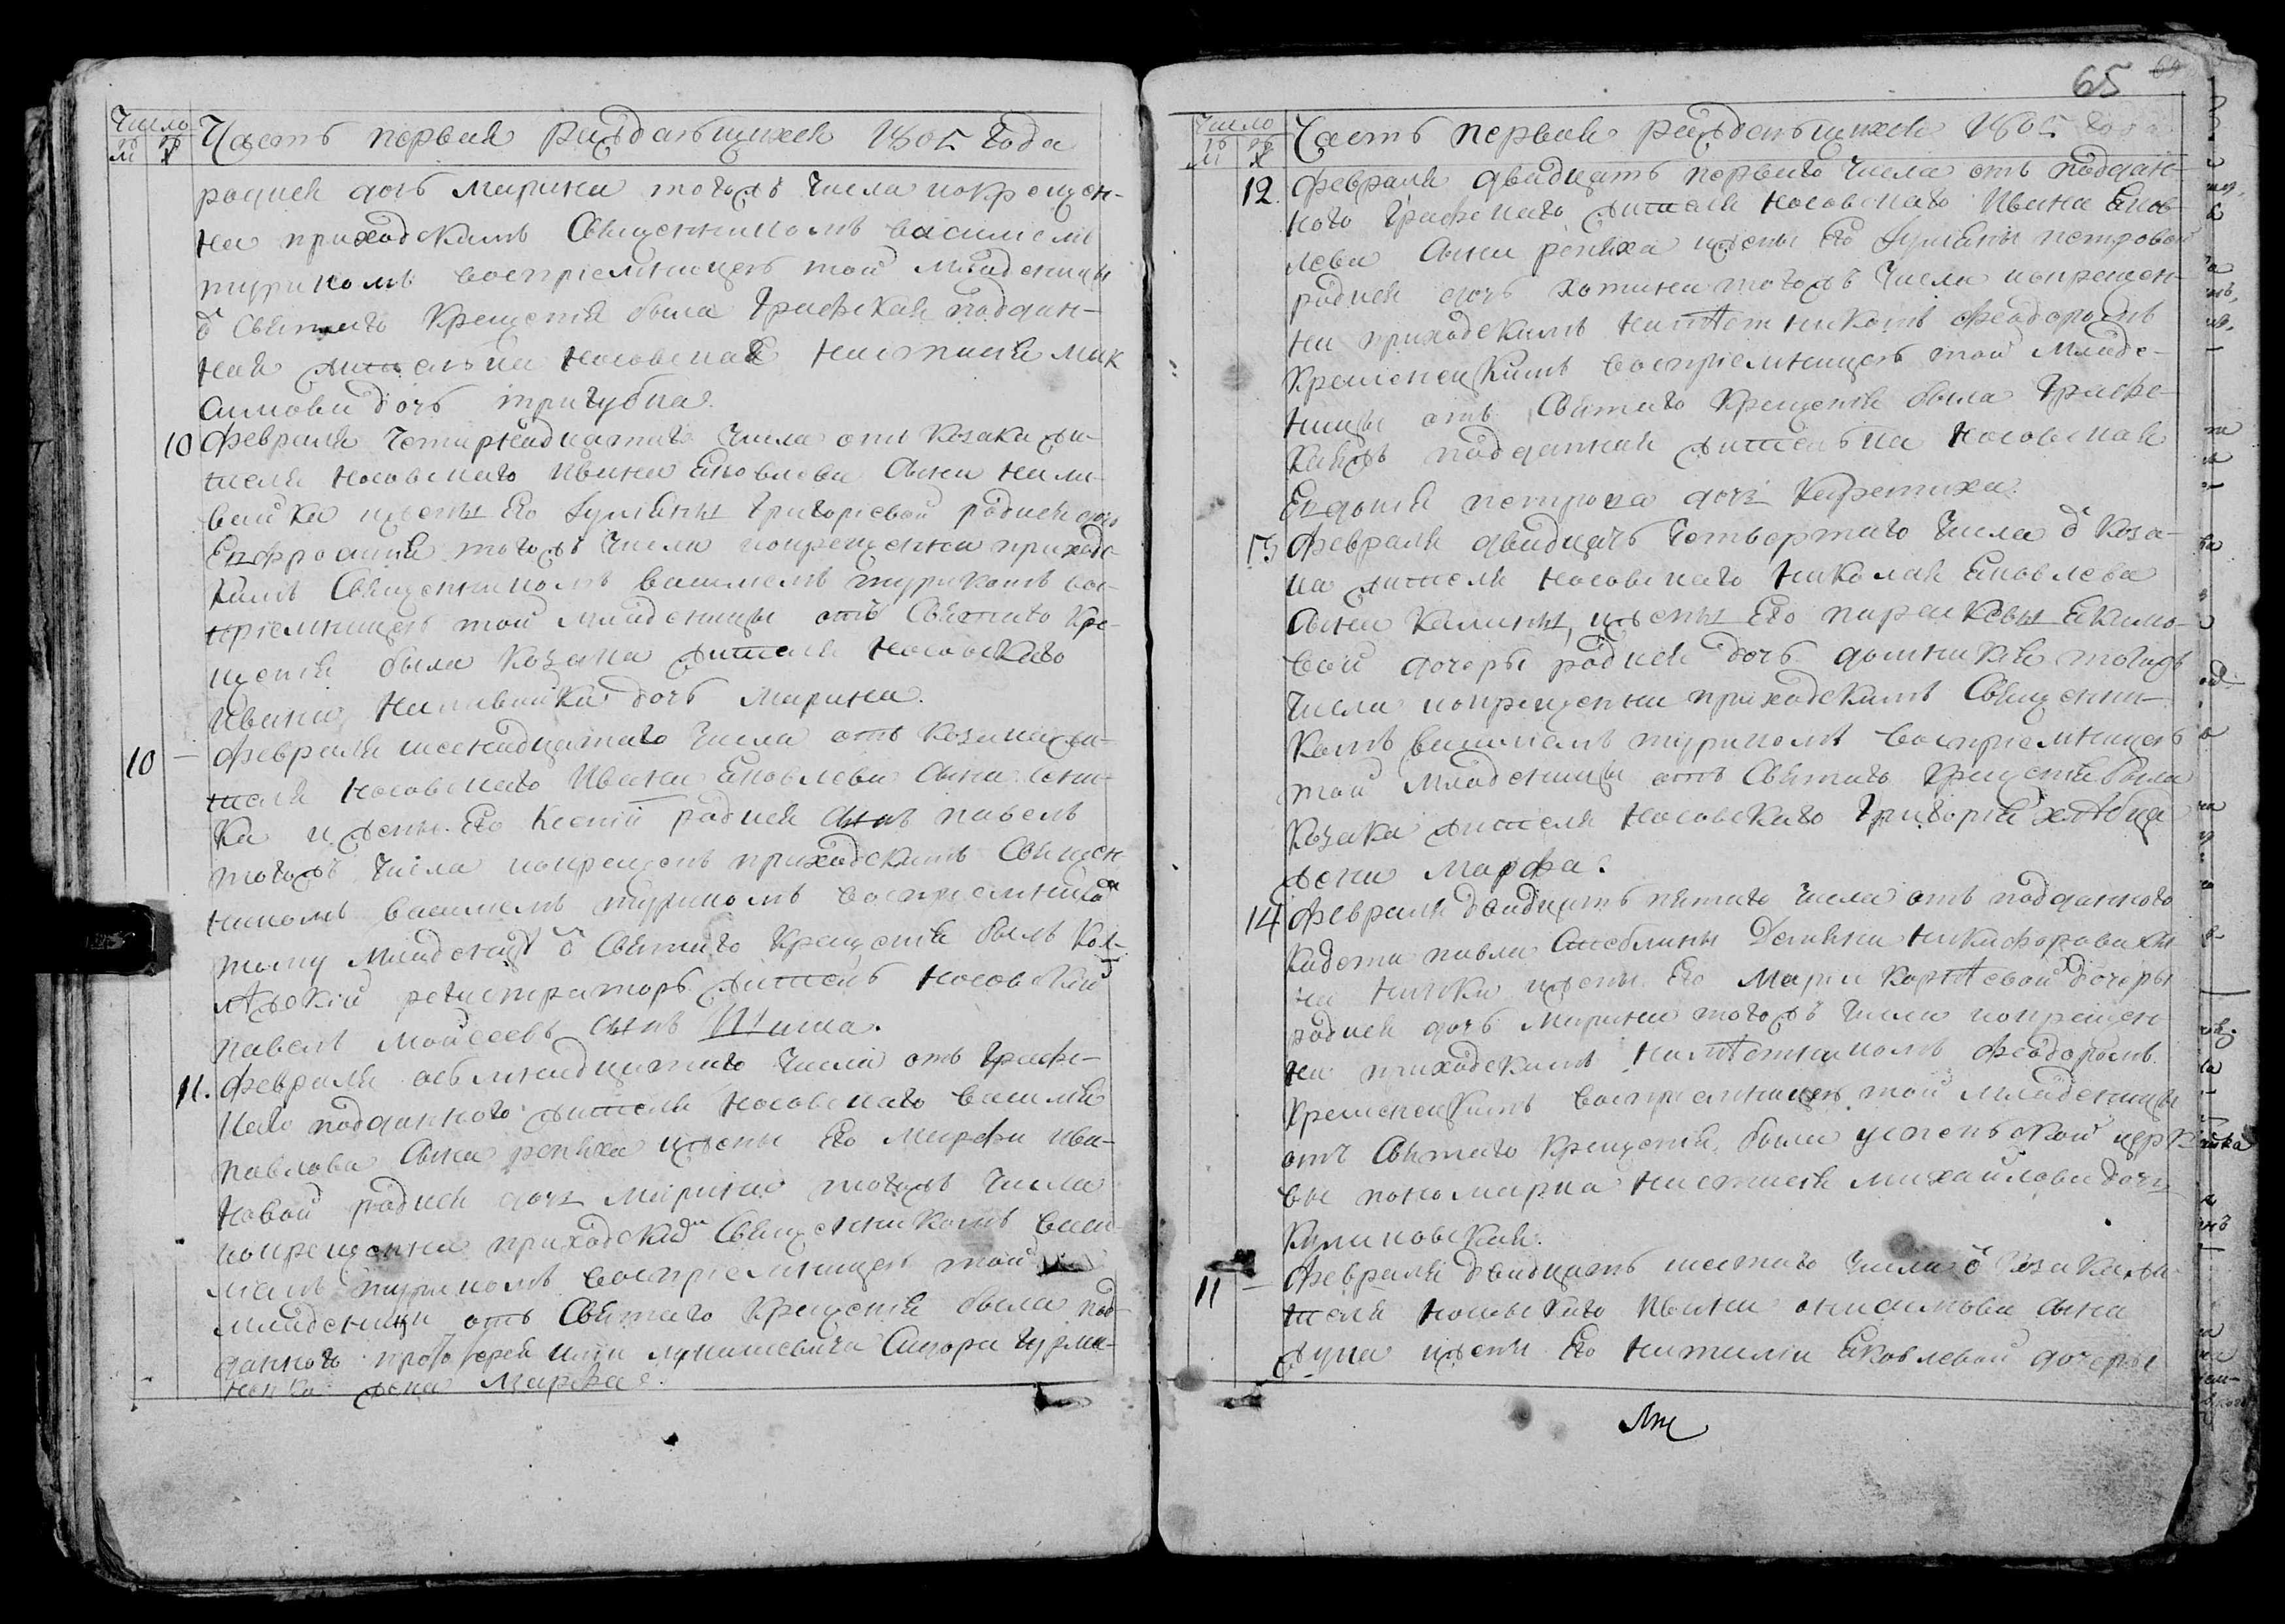 Число
м ж
Часть первая раждающихся 1805 года
родися дочь Марина тогожъ числа и окрещен-
на приходскимъ Священникомъ василиемъ
туриномъ восприемницею той младеницы
ѿ Святаго Крещения была Графская поддан-
ная жителька носовская настасия мак
симова дочъ тригубка
10 Февраля четирнадцатаго числа отъ козака жи-
теля носовского Ивана Яковлева сина нали-
вайка и жены его Гулияны григориевой родися дочъ
Евфросиния тогожъ числа и окрещенна приход-
кимъ Священникомъ василиемъ туриномъ вос-
приемницею той младеницы отъ Святаго Кре-
щения была козака жителя носовского
Ивана наливайка дочъ Марина.
10 — Февраля шеснадцатаго числа отъ козака жи-
теля носовского Ивана Яковлева сина
ка и жены его Ксении родися синъ павелъ
тогожъ числа и окрещенъ приходскимъ Священ
никомъ василиемъ туриномъ восприемникомъ
тому младенцу ѿ Святаго Крещения былъ Кол-
лѣжский регистраторъ житель носовский
павелъ мойсеевъ синъ Шиша.
11. Февраля осьмнадцатаго числа отъ граф-
скаго подданного жителя носовского василия
павлова сина репяха и жены его марфы ива-
новой родися дочъ марина тогожъ числа
и окрещенна приходским Священникомъ васи-
лиемъ туриномъ восприемницею той
младеницы отъ Святаго Крещения была под-
данного протоиерея лукашевича Сидора гурма-
ненка жена Марфа.
65
Число
м ж
Часть первая раждающихся 1805 года
12. Февраля двадцать первого числа отъ поддан-
ного графского жителя носовского Ивана Яков-
лева сина репяха и жены его Гулияны петровой
родися дочъ хотина тогожъ числа и окрещен-
на приходскимъ намѣстникомъ Феодоромъ
Кременецкимъ восприемницею той младе-
ницы отъ Святаго Крещения была Граф-
каяжъ подданная жителька носовская
Евдокия петрова дочъ Кафетиха.
13 Февраля двадцать четвертого числа ѿ коза-
ка жителя носовского николая Яковлева
сина Калины, и жены его параскевы Екимо-
вой дочеры родися дочъ домникия тогожъ
числа и окрещенна приходскимъ Священни-
комъ василиемъ туриномъ восприемницею
той младеницы отъ Святаго Крещения была
козака жителя носовского григория хлѣбца
жена марфа.
14 Февраля двадцать пятого числа отъ подданного
кадета павла Стеблины Демяна никифорова си
на и жены его Марии Корнѣевой дочеры
родися дочъ Марина тогожъ числа и окрещен
на приходскимъ намѣстникомъ Феодоромъ
Кременецкимъ восприемницею той младеницы
отъ Святаго Крещения была успенской церк
вы понамарка настасия михайлова дочъ
Куликовская.
11 — Февраля двадцать шестого числа ѿ козака жи-
теля носовского Ивана онисимова сина
жука и жены его наталии Яковлевой дочеры